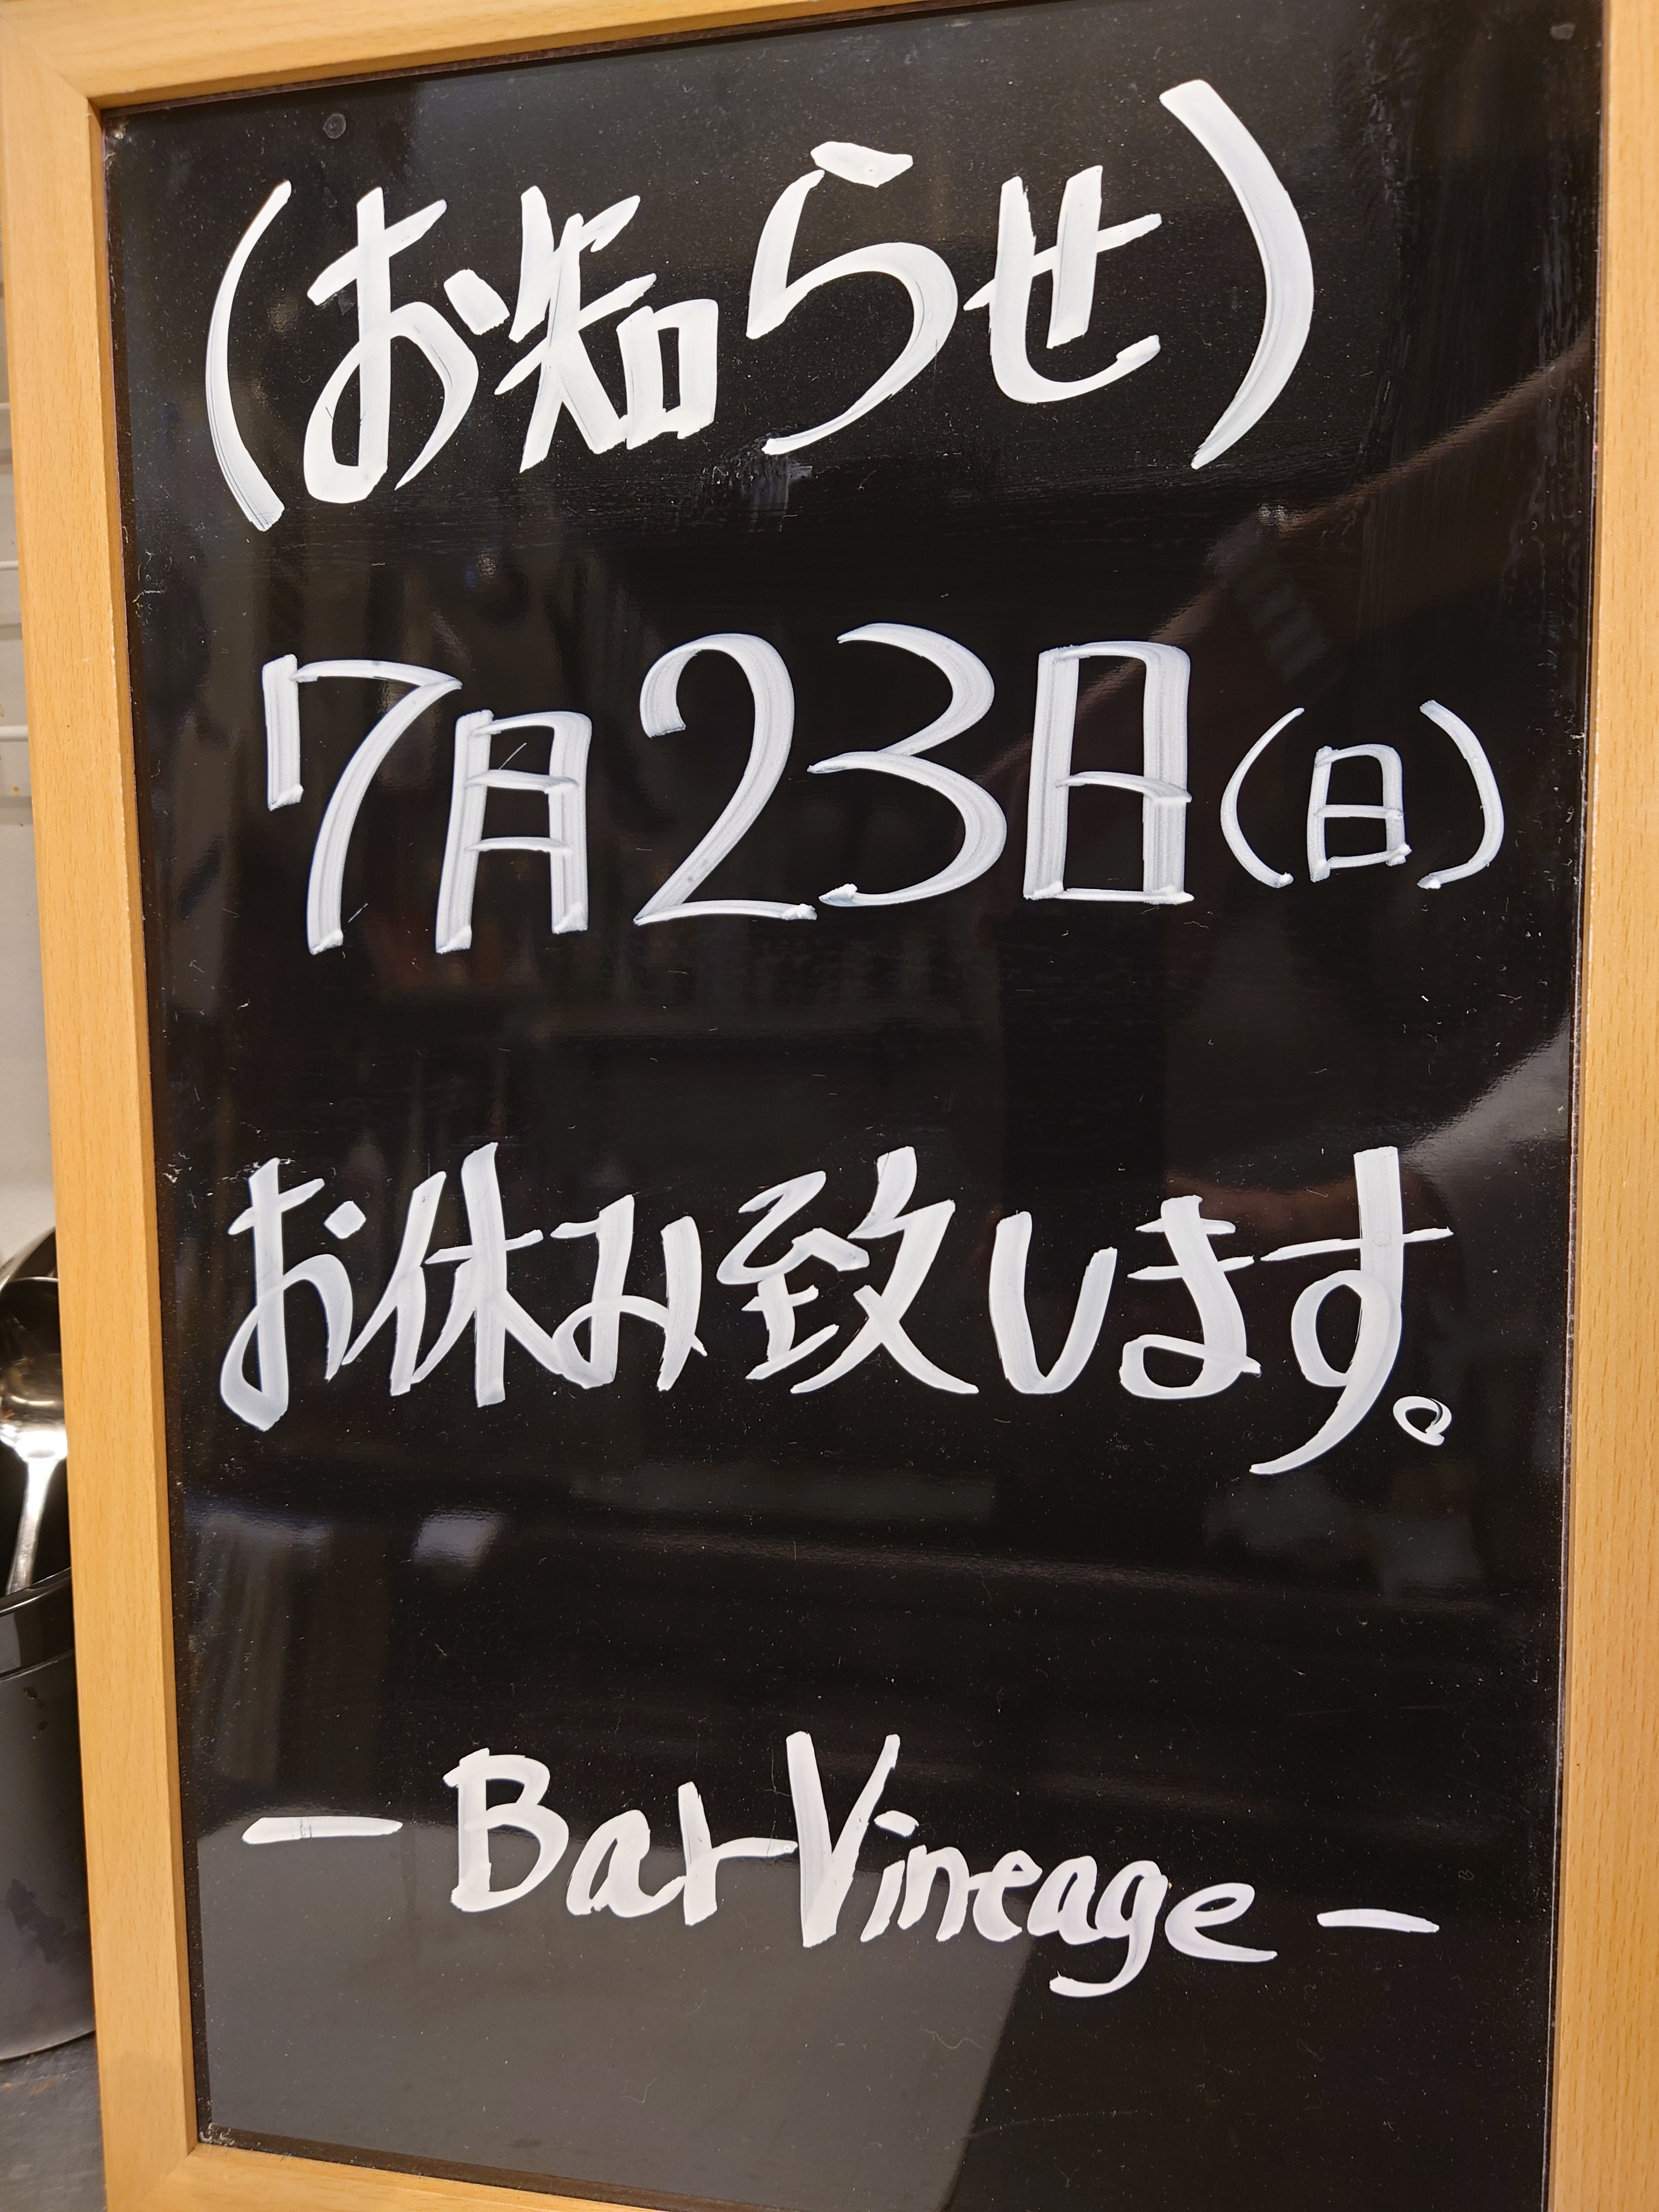 (お知らせ)
7月23日(日)
お休み致します。
－Bar Vineage－